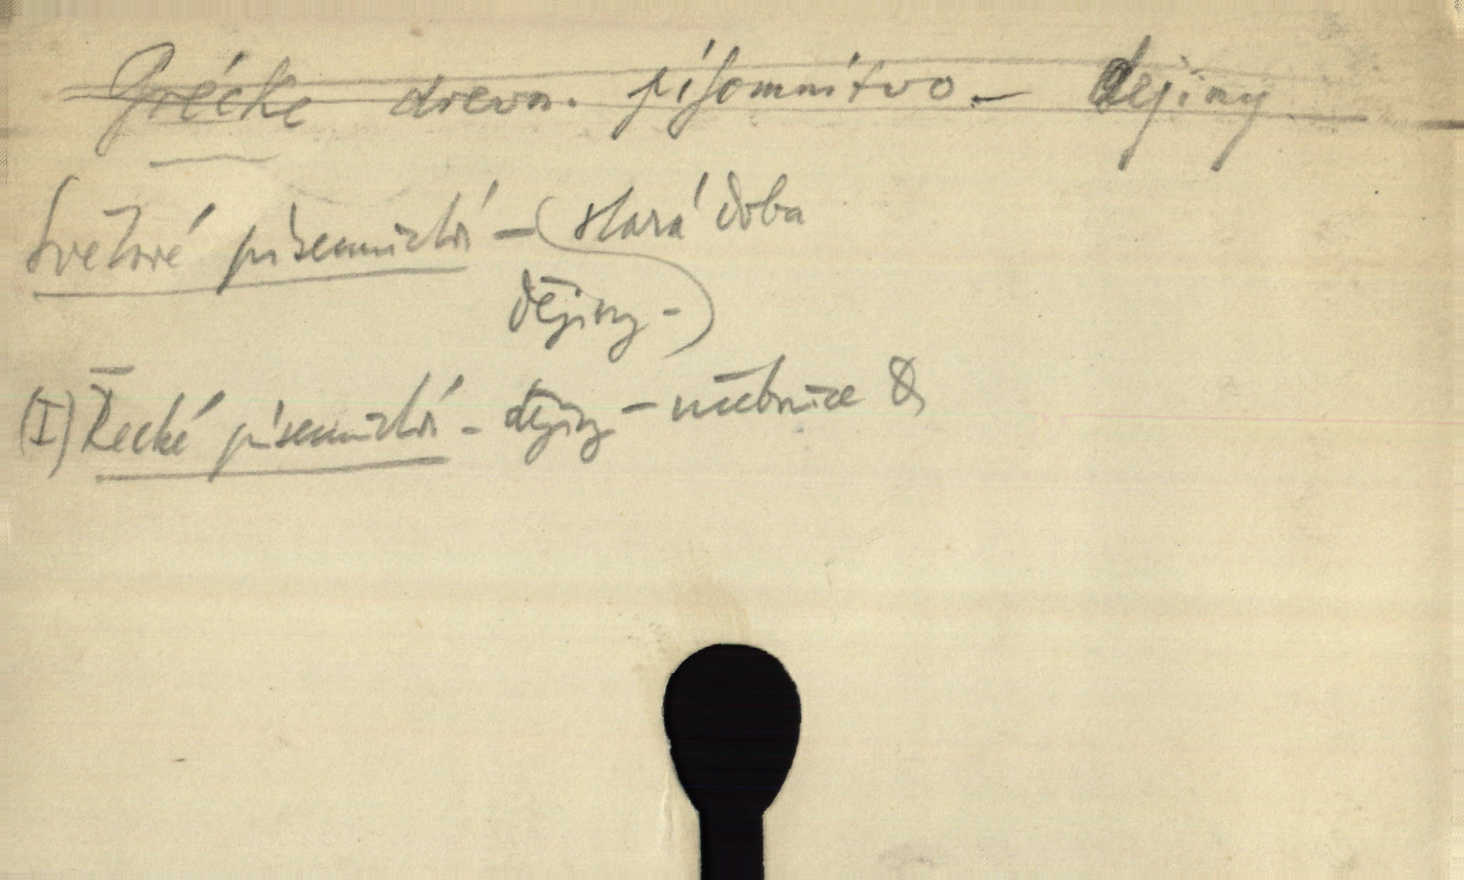 Grécke drevn. písomnítvo. - dejiny
Světové písemnictví - (stará doba
dějiny -)
(I) Řecké písemnictví - dějiny - učebnice